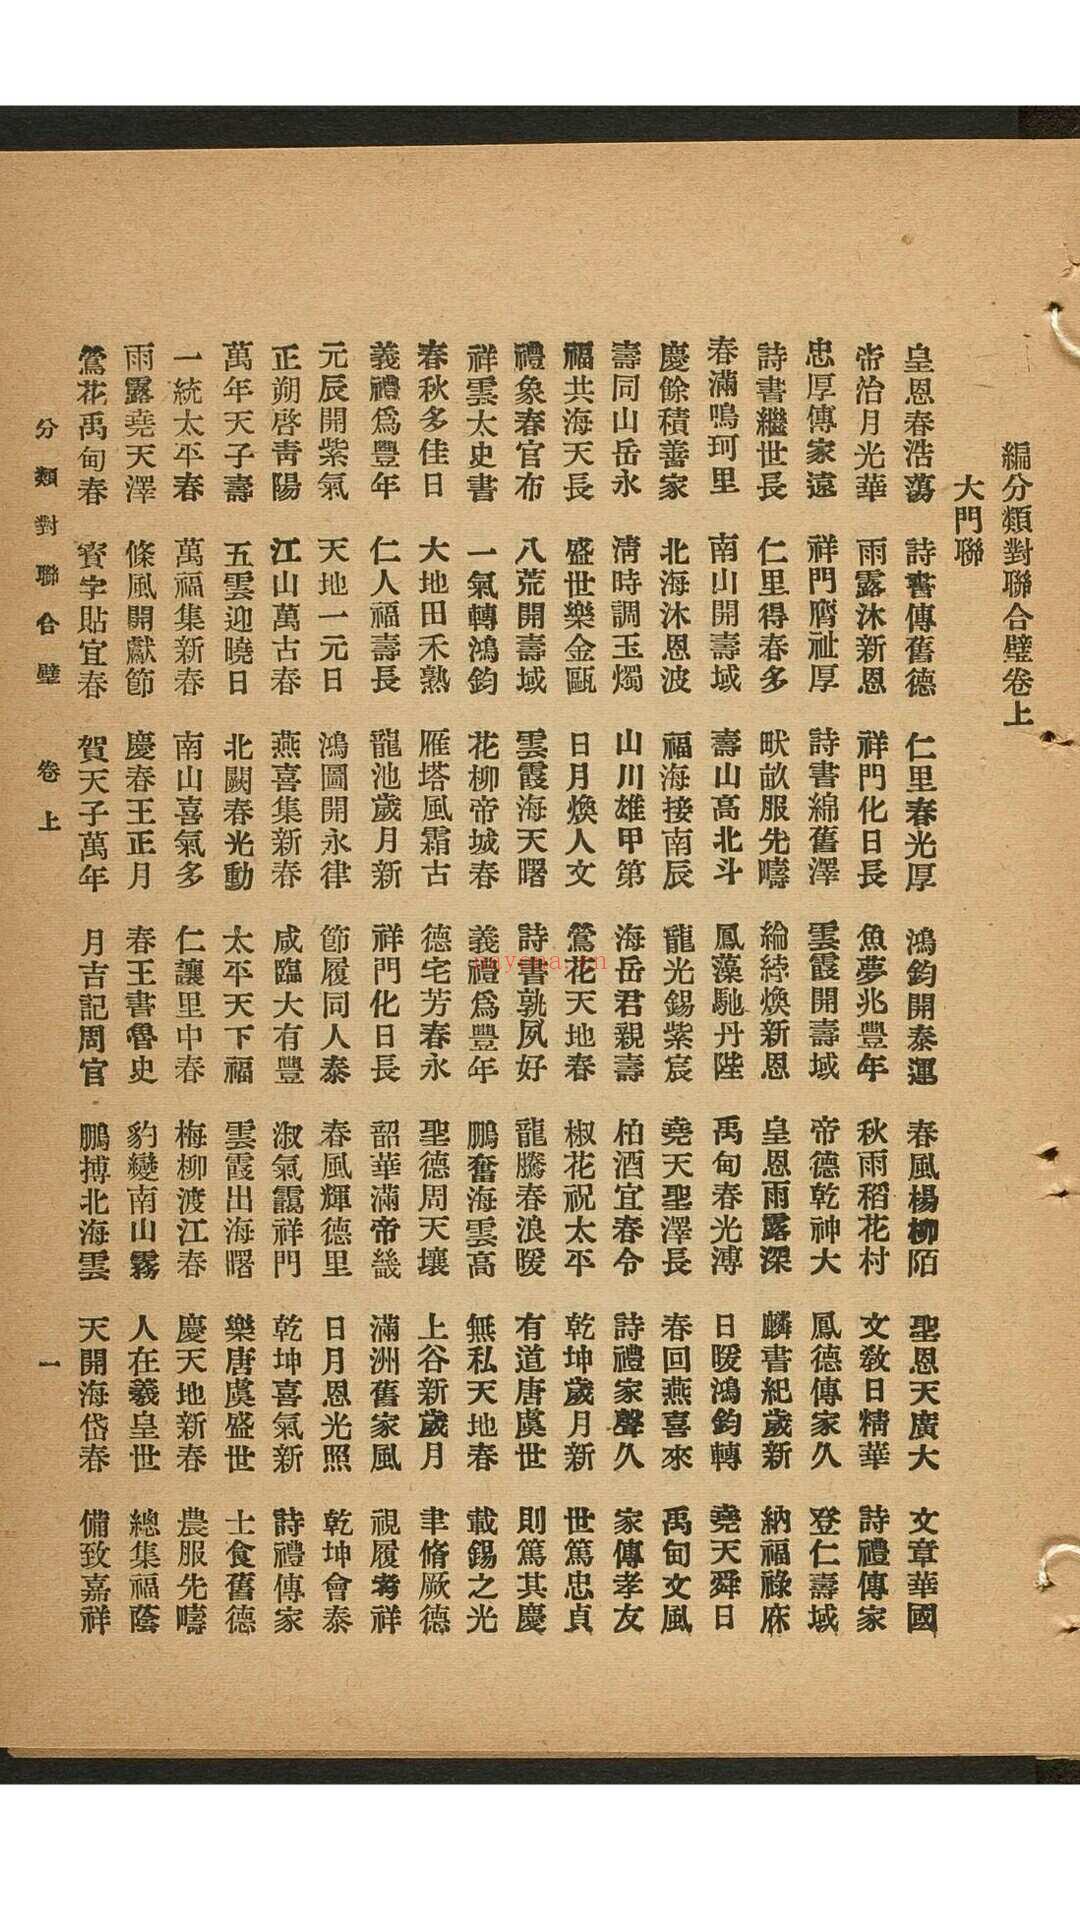 編分類對聯合璧卷上
大門聯
皇恩春浩蕩 詩書傳舊德 仁里春光厚 鴻鈞開泰運 春風楊柳陌 聖恩天廣大 文章華國
帝治月光華 雨露沐新恩 祥門化日長 魚夢兆豐年 秋雨稻花村 文敎日精華 詩禮傳家
忠厚傳家遠 祥門膺祉厚 詩書綿舊澤 雲霞開壽域 帝德乾神大 鳳德傳家久 登仁壽域
詩書繼世長 仁里得春多 畎畝服先疇 綸綍煥新恩 皇恩雨露深 麟書紀歲新 納福祿庥
春滿鳴珂里 南山開壽域 壽山高北斗 鳳藻馳丹陛 禹甸春光溥 日暖鴻鈞轉 堯天舜日
慶餘積善家 北海沐恩波 福海接南辰 龍光錫紫宸 堯天聖澤長 春回燕喜來 禹甸文風
壽同山岳永 淸時調玉燭 山川雄甲第 海岳君親壽 柏酒宜春令 詩禮家聲久 家傳孝友
福共海天長 盛世樂金甌 日月煥人文 鶯花天地春 椒花祝太平 乾坤歲月新 世篤忠貞
禮象春官布 八荒開壽域 雲霞海天曙 詩書孰夙好 龍騰春浪暖 有道唐虞世 則篤其慶
祥雲太史書 一氣轉鴻鈞 花柳帝城春 義禮爲豐年 鵬奮海雲高 無私天地春 載錫之光
春秋多佳日 大地田禾熟 雁塔風霜古 德宅芳春永 聖德周天壤 上谷新歲月 聿脩厥德
義禮爲豐年 仁人福壽長 龍池歲月新 祥門化日長 韶華滿帝畿 滿洲舊家風 視履考祥
元辰開紫氣 天地一元日 鴻圖開永律 節履同人泰 春風輝德里 日月恩光照 乾坤會泰
正朔啓靑陽 江山萬古春 燕喜集新春 咸臨大有豐 淑氣靄祥門 乾坤喜氣新 詩禮傳家
萬年天子壽 五雲迎曉日 北闕春光動 太平天下福 雲霞出海曙 樂唐虞盛世 士食舊德
一統太平春 萬福集新春 南山喜氣多 仁讓里中春 梅柳渡江春 慶天地新春 農服先疇
雨露堯天澤 條風開獻節 慶春王正月 春王書魯史 豹變南山霧 人在羲皇世 總集福蔭
鶯花禹甸春 寳字貼宜春 賀天子萬年 月吉記周官 鵬搏北海雲 天開海岱春 備致嘉祥
分類對聯合璧 卷上 一
nayona.cn